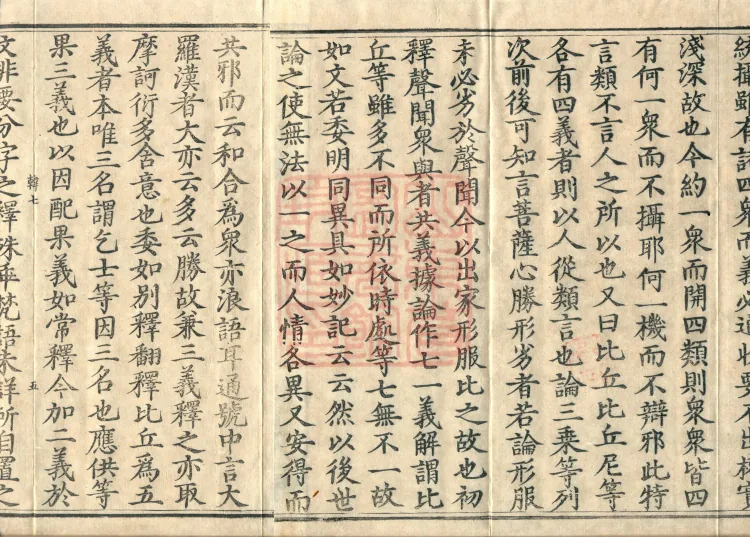 統攝雖有詮四衆而義必通收要不出權實
淺深故也今約一衆而開四類則衆衆皆四
有何一衆而不攝耶何一機而不辯邪此特
言類不言人之所以也又曰比丘比丘尼等
各有四義者則以人從類言也論三乗等列
次前後可知言菩薩心勝形劣者若論形服
未必劣於聲聞今以出家形服比之故也初
釋聲聞衆與者共義據論作七一義解謂比
丘等雖多不同而所依時處等七無不一故
如文若委明同異具如妙記云云然以後世
論之使無法以一之而人情各異又安得而
共邪而云和合爲衆亦浪語耳通號中言大
羅漢者大亦云多云勝故兼三義釋之亦取
摩訶衍多含意也委如別釋翻釋比丘爲五
義者本唯三名謂乞士等因三名也應供等
果三義也以因配果義如常釋今加二義於
韓七
五
文非要分字之釋殊乖梵語未詳所自置之